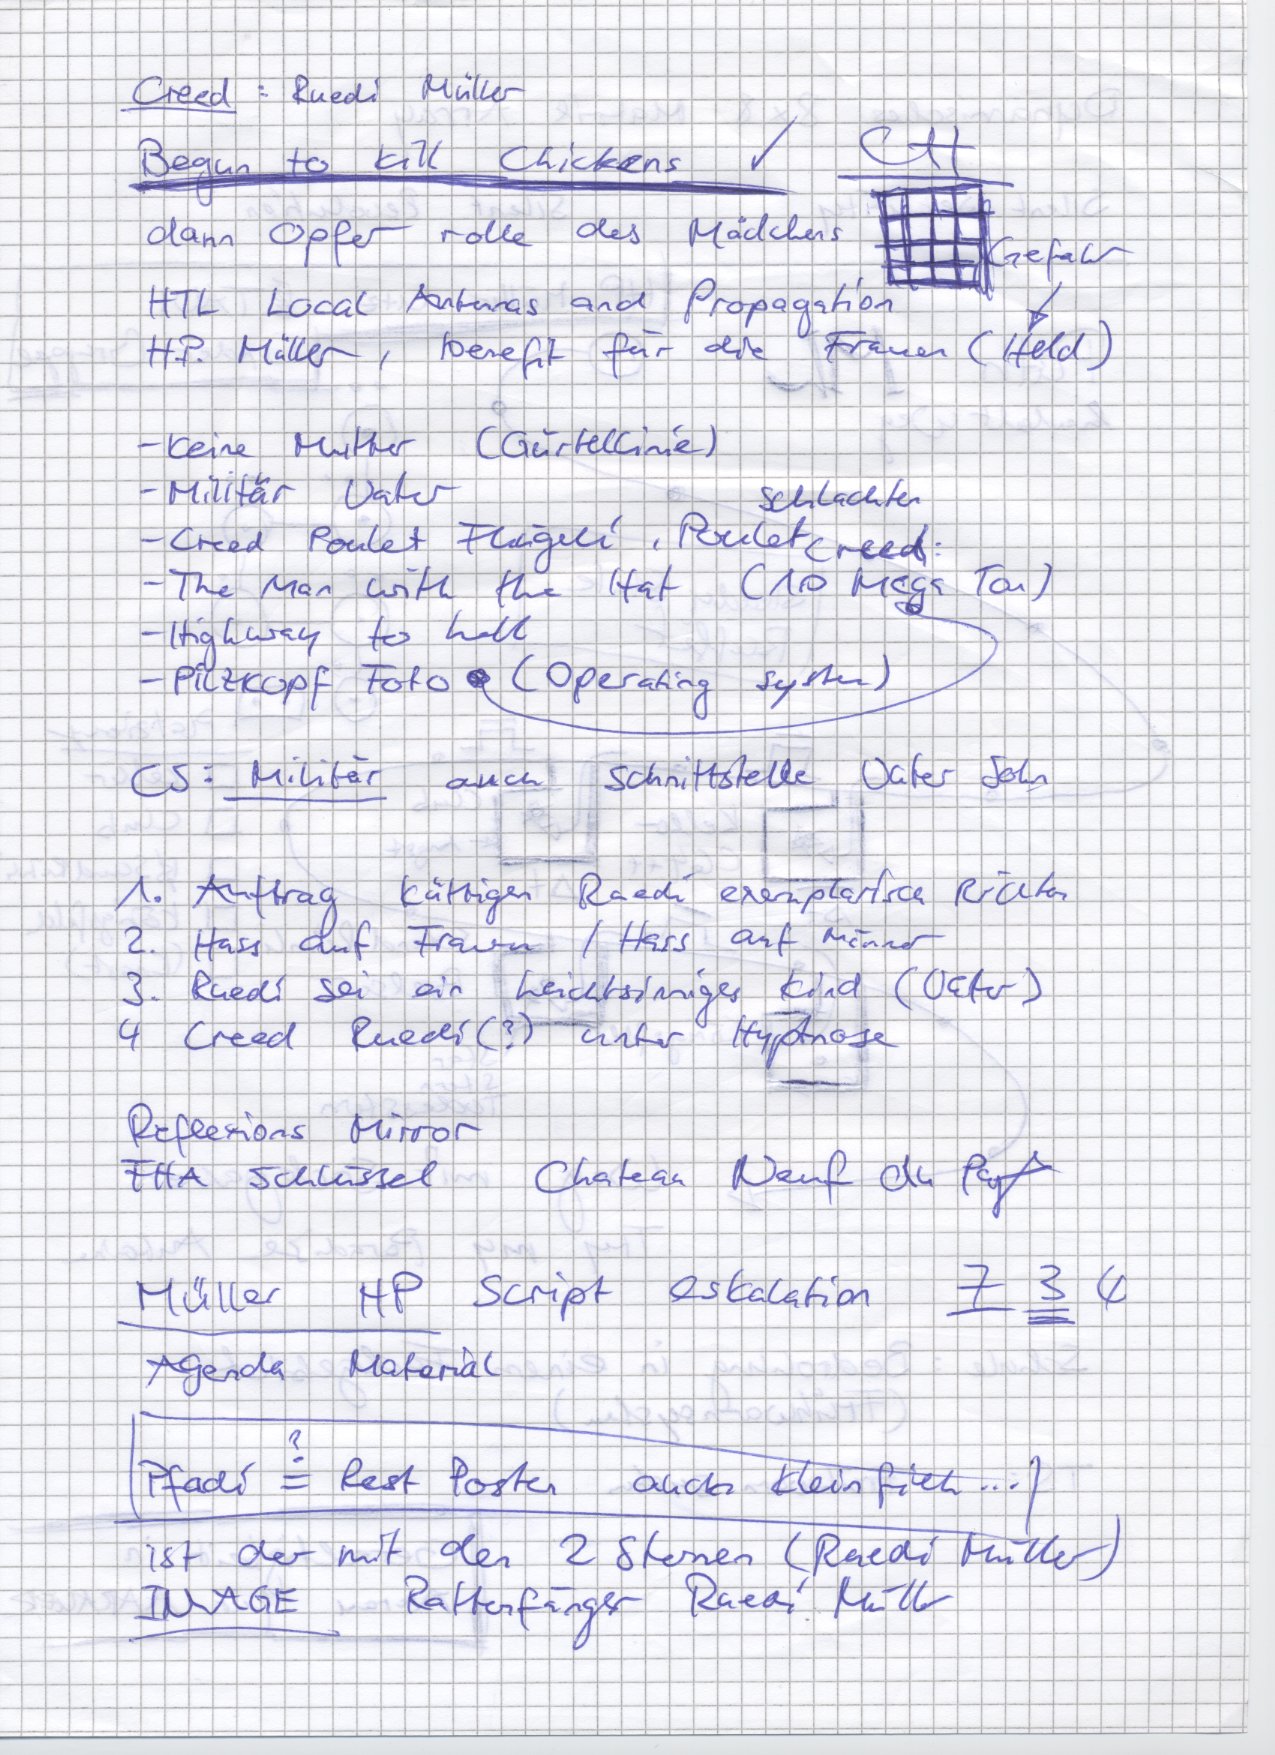 Creed : Ruedi Müller
Begun to kill Chickens ✓ CH
dann Opfer rolle des Mädchens
Gefahr
HTL Local Antennas and Propagation
H.P. Müller, benefit für die Frauen (Held)
- Keine Mutter (Gürtellinie)
- Militär Vater
schlachten
- Creed Poulet Flügeli, Poulet Creed:
- The Man with the Hat (10 Mega Ton)
- Highway to hell
- Pilzkopf Foto (Operating system)
CS: Militär auch Schnittstelle Vater Sohn
1. Auftrag Küttigen Ruedi exemplarisch Richten
2. Hass auf Frauen / Hass auf Männer
3. Ruedi sei ein leichtsinniges Kind (Vater)
4 Creed Ruedi (?) unter Hyptnose
Reflexions Mirror
FHA Schlüssel Chateau Neuf du Pap
Müller HP Script eskalation 7 3 4
Agenda Material
?
Pfadi = Rest Posten auch Klein ...
ist der mit den 2 Sternen (Ruedi Müller)
IMAGE Rattenfänger Ruedi Müller